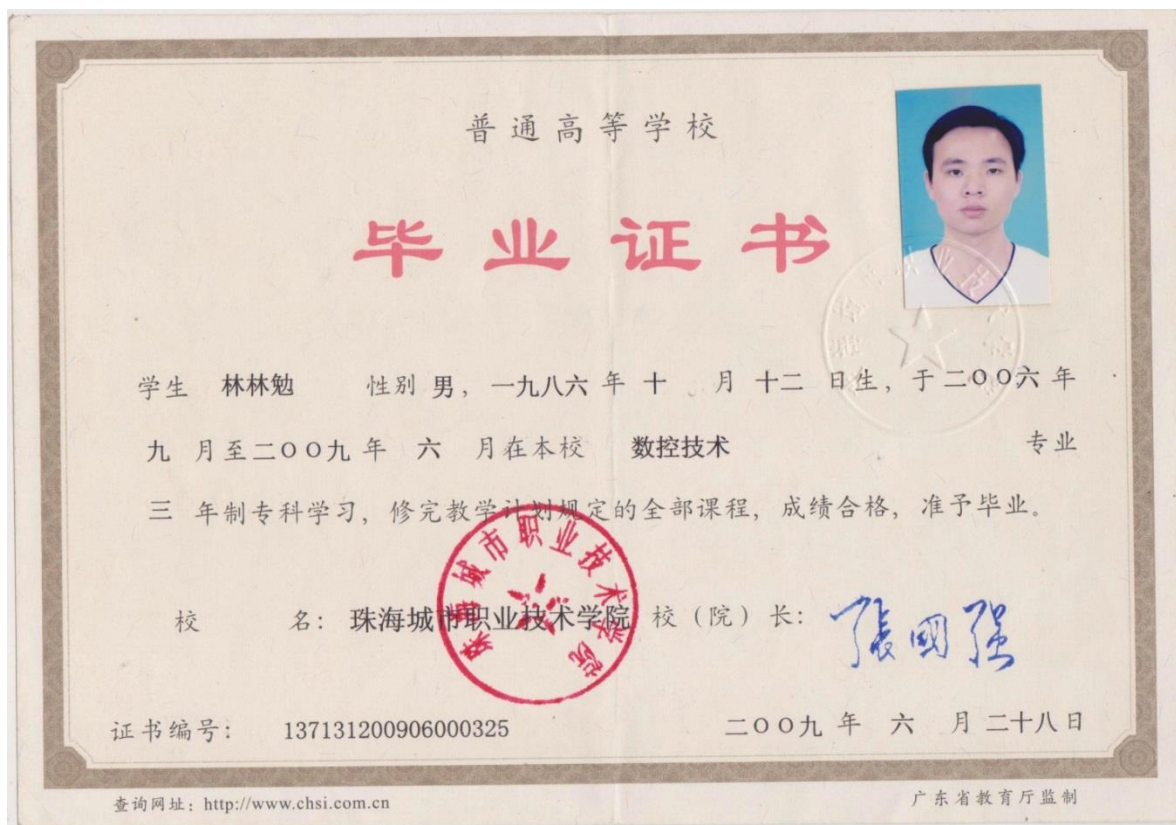 普通高等学校
毕业证书
学生 林林勉 性别 男，一九八六 年 十 月 十二 日生，于 二○○六 年
九 月至 二○○九 年 六 月在本校 数控技术 专业
三 年制专科学习，修完教学计划规定的全部课程，成绩合格，准予毕业。
校 名：珠海城市职业技术学院 校（院）长：張國强
珠海城市职业技术学院
证书编号： 137131200906000325 二○○九 年 六 月 二十八日
查询网址：http://www.chsi.com.cn 广东省教育厅监制